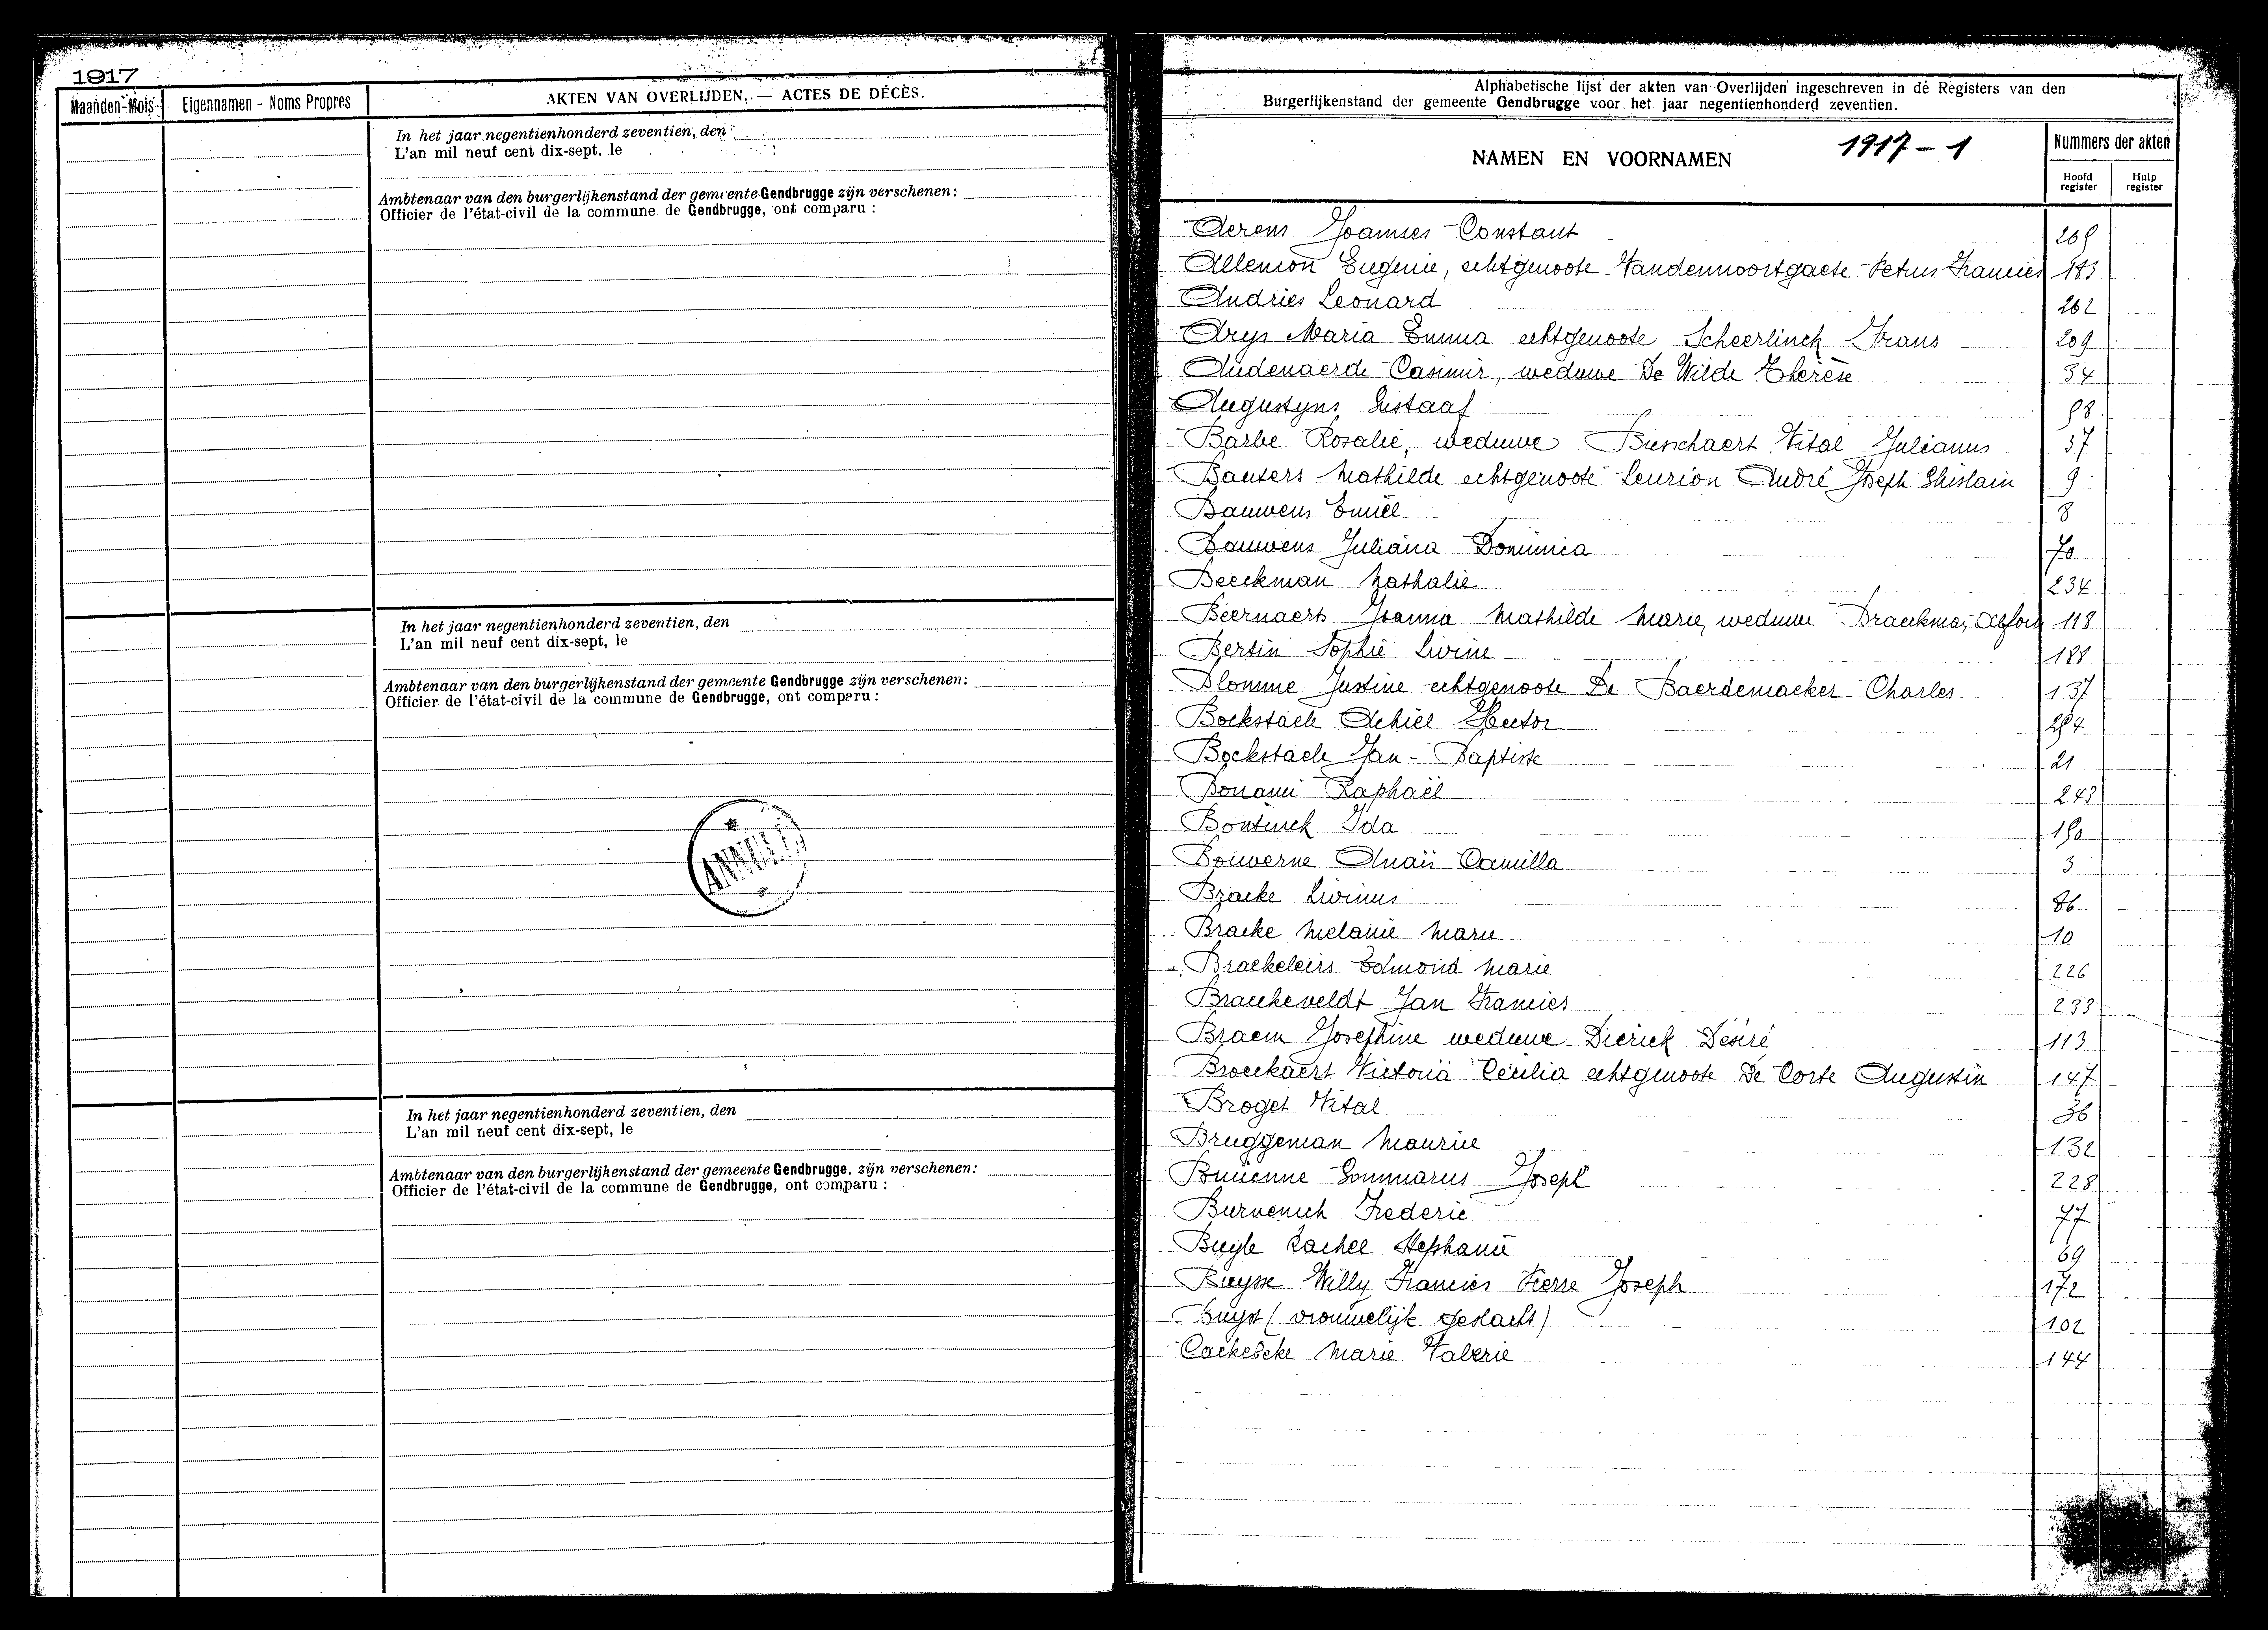 1917
Maanden-Mois
Eigennamen - Noms Propres
AKTEN VAN OVERLIJDEN. — ACTES DE DÉCÈS.
In het jaar negentienhonderd zeventien, den
L'an mil neuf cent dix-sept, le
Ambtenaar van den burgerlijkenstand der gemeente Gendbrugge zijn verschenen:
Officier de l'état-civil de la commune de Gendbrugge, ont comparu :
In het jaar negentienhonderd zeventien, den
L'an mil neuf cent dix-sept, le
Ambtenaar van den burgerlijkenstand der gemeente Gendbrugge zijn verschenen:
Officier de l'état-civil de la commune de Gendbrugge, ont comparu :
ANNULÉ
In het jaar negentienhonderd zeventien, den
L'an mil neuf cent dix-sept, le
Ambtenaar van den burgerlijkenstand der gemeente Gendbrugge, zijn verschenen:
Officier de l'état-civil de la commune de Gendbrugge, ont comparu :
Alphabetische lijst der akten van Overlijden ingeschreven in dé Registers van den
Burgerlijkenstand der gemeente Gendbrugge voor het jaar negentienhonderd zeventien.
NAMEN EN VOORNAMEN
1917 - 1
Nummers der akten
Hoofd register
Hulp register
Aerens Joannes-Constant
Allemon Eugenie, echtgenoote Vandennoortgaete Petrus Francies 183
Andries Leonard 262
Arys Maria Emma echtgenoote Scheerlinck Frans 209
Audenaerde Casimir, weduwe De Wilde Therèse 34
Augustyns Gustaaf 98
Barbe Rosalie, weduwe Busschaert Vital Julianus 37
Bauters Mathilde echtgenoote Leurion André Joseph Ghislain 9
Bauwens Emiel 8
Bauwens Juliana Dominica 70
Beeckman Nathalie 234
Beernaert Joanna Mathilde Marie, weduwe Braeckman Alfons 118
Bertin Sophie Livine 188
Blomme Justine echtgenoote De Baerdemaeker Charles 137
Bockstaele Achiel Hector
Bockstaele Jan-Baptiste 21
Bonami Raphaël 243
Bontinck Ida 190
Bouwerne Anaïs Camilla 3
Bracke Livinus 86
Bracke Melanie Marie 10
Braekeleirs Edmond Marie 226
Braeckeveldt Jan Francies 233
Braem Josephine weduwe Dierick Désiré 113
Broeckaert Victoria Cecilia echtgenoote De Corte Augustin 147
Broget Vital 36
Bruggeman Maurice 132
Gommarus Joseph 228
Burvenich Frederic 77
Buyle Rachel Stephanie 69
Buysse Willy Francies Pierre Joseph 172
Buyst (vrouwelijk geslacht) 102
Marie Valerie 144